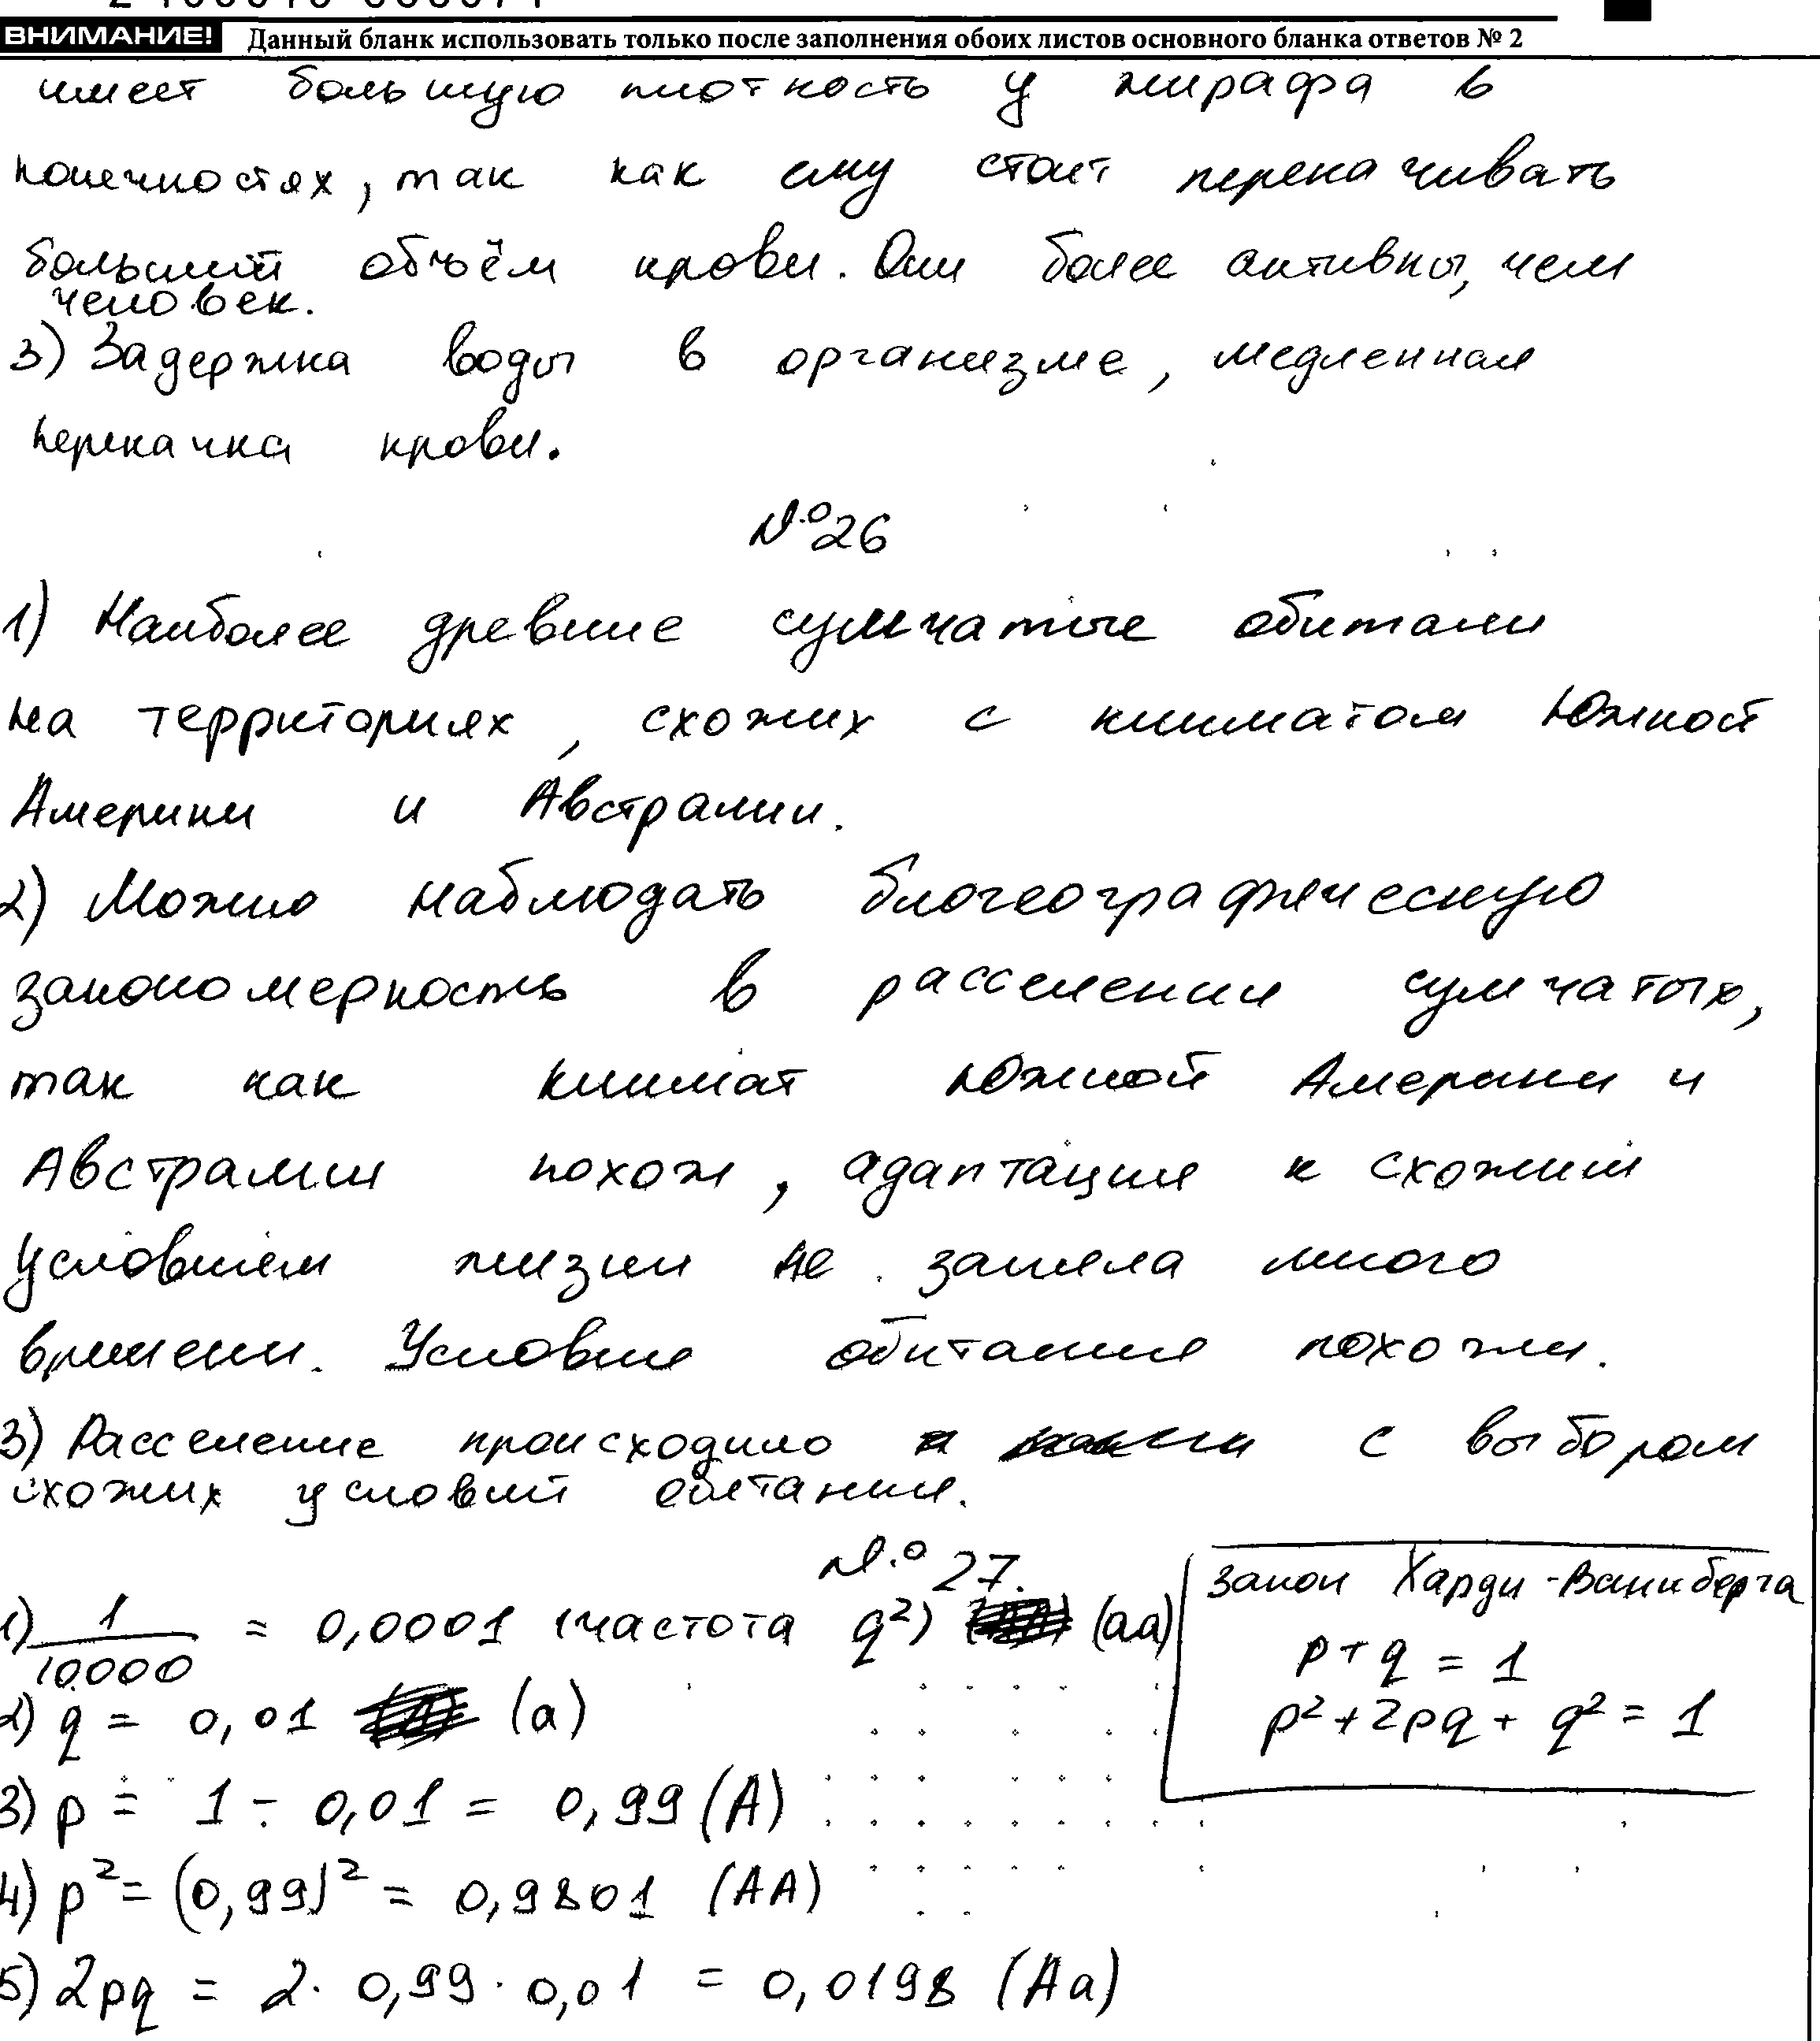 ВНИМАНИЕ! Данный бланк использовать только после заполнения обоих листов основного бланка ответов № 2
имеет большую плотность у жирафа в
конечностях, так как ему стоит перекачивать
больший объём крови. Они более активны, чем
человек.
3) Задержка воды в организме, медленная
перекачка крови.
№26
1) Наиболее древние сумчатые обитали
на территориях, схожих с климатом Южной
Америки и Австралии.
2) Можно наблюдать биогеографическую
закономерность в расселении сумчатых,
так как климат Южной Америки и
Австралии похож, адаптация к схожим
условиям жизни не заняла много
времени. Условия обитания похожи.
3) Расселение происходило с выбором
схожих условий обитания.
№ 27.
Закон Харди-Вайнберга
p+q = 1
p²+2pq+q² = 1
1) 1/10000 = 0,0001 (частота q²) (aa)
2) q = 0,01 (a)
3) p = 1 - 0,01 = 0,99 (A)
4) p² = (0,99)² = 0,9801 (AA)
5) 2pq = 2 · 0,99 · 0,01 = 0,0198 (Aa)